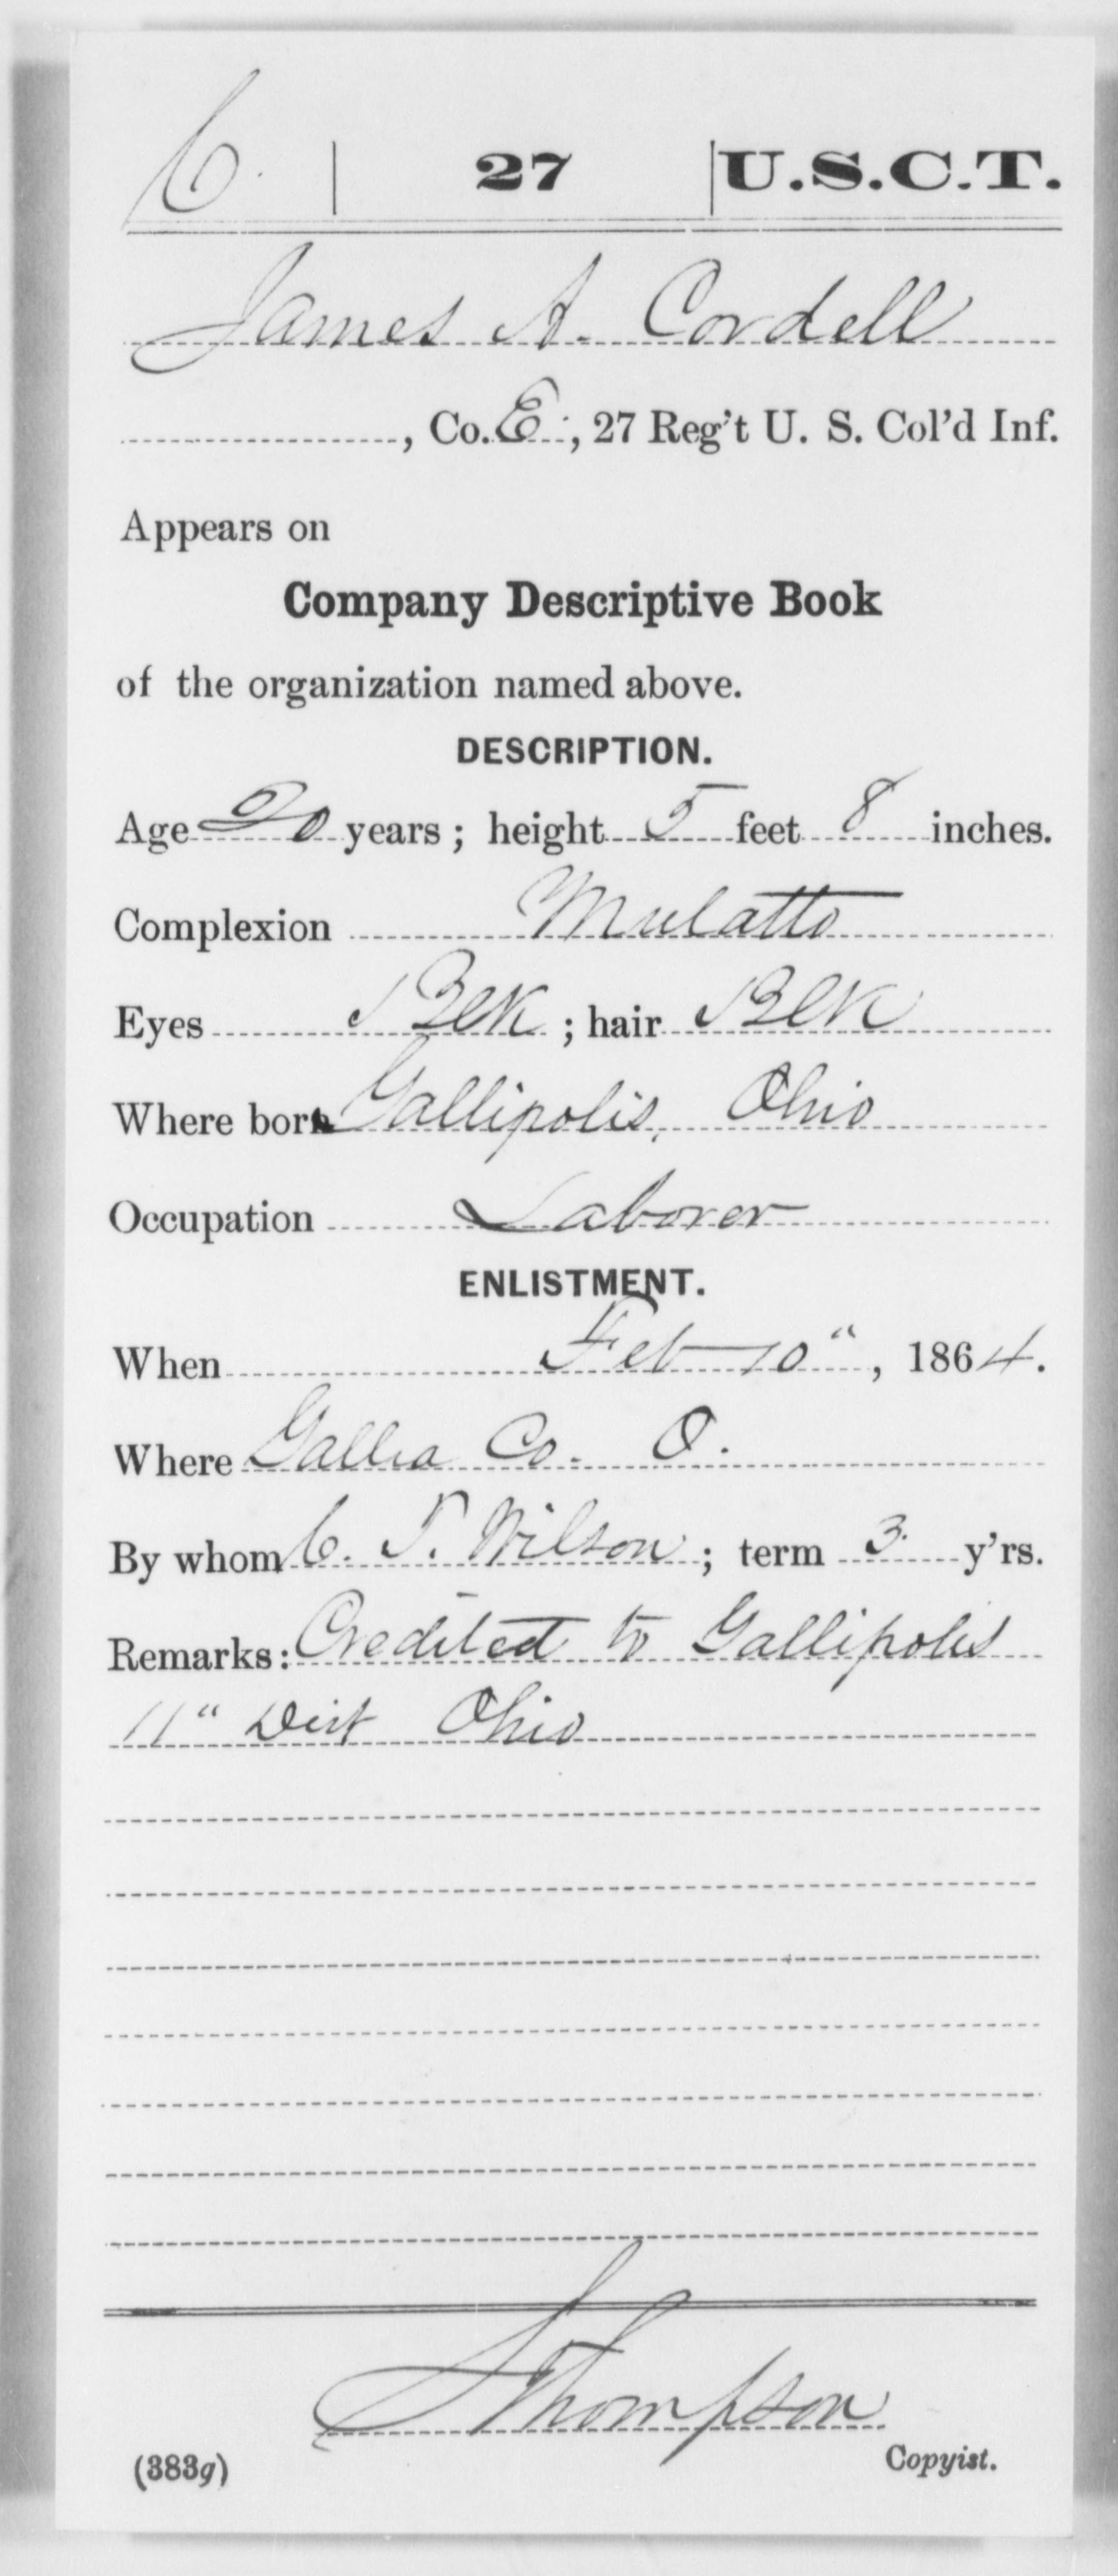 C. | 27 | U.S.C.T.
James A. Cordell
, Co. E., 27 Reg't U. S. Col'd Inf.
Appears on
Company Descriptive Book
of the organization named above.
DESCRIPTION.
Age 20 years; height 5 feet 8 inches.
Complexion Mulatto
Eyes Blk; hair Blk
Where born Gallipolis, Ohio
Occupation Laborer
ENLISTMENT.
When Feb 10", 1864.
Where Gallia Co. O.
By whom C. T. Wilson; term 3 y'rs.
Remarks: Credited to Gallipolis
11" Dist Ohio
Thompson
(383g) Copyist.